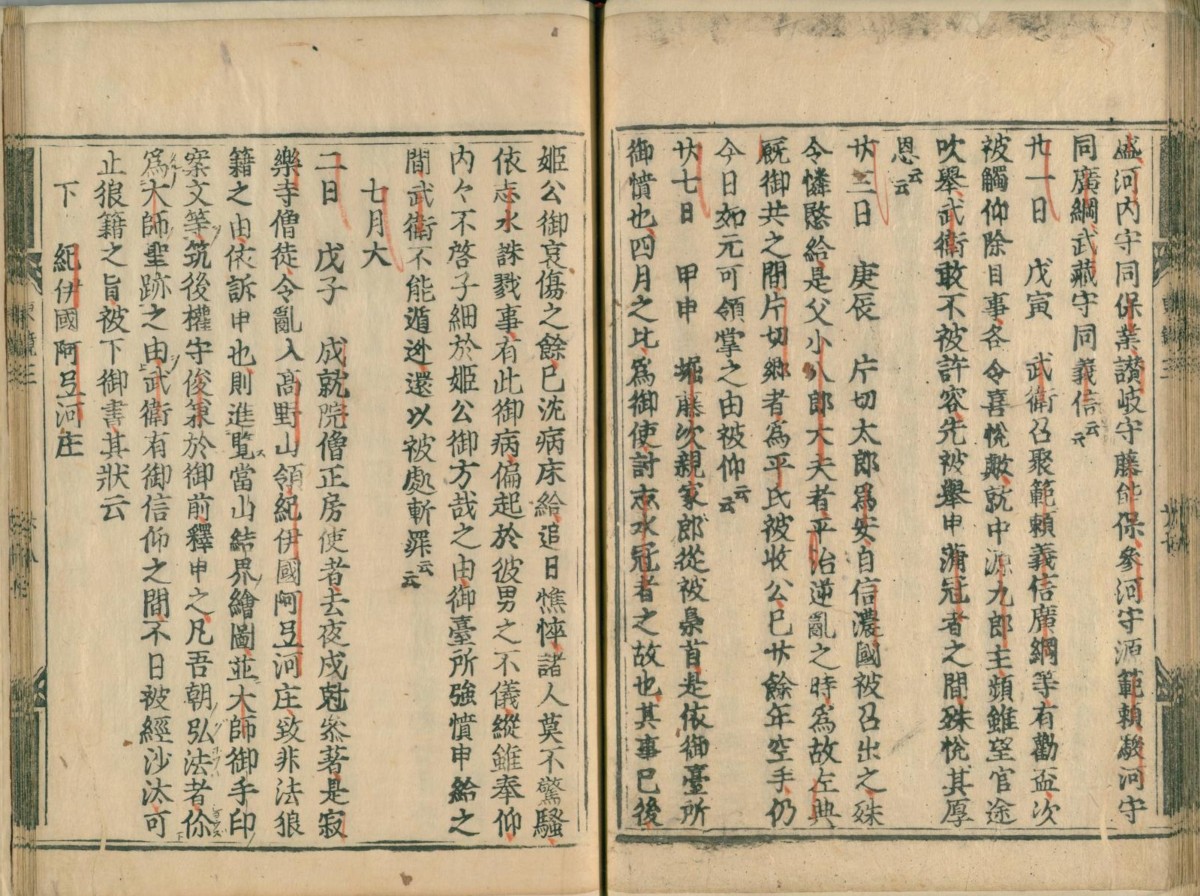 盛河内守同保業讃岐守藤能保參河守源範頼駿河守
同廣綱武藏守同義信云云
廿一日 戊寅 武衛召聚範頼義信廣綱等有勸盃次
被觸仰除目事各令喜悅歟就中源九郎主頻雖望官途
吹舉武衛敢不被許容先被舉申蒲冠者之間殊悅其厚
恩云云
廿三日 庚辰 片切太郎爲安自信濃國被召出之殊
令憐愍給是父小八郎大夫者平治逆亂之時爲故左典
厩御共之間片切郷者爲平氏被收公已廿餘年空手仍
今日如元可領掌之由被仰云云
廿七日 甲申 堀藤次親家郎從被梟首是依御臺所
御憤也四月之比爲御使討志水冠者之故也其事已後
姫公御哀傷之餘已沈病床給追日憔悴諸人莫不驚騷
依志水誅戮事有此御病偏起於彼男之不儀縱雖奉仰
内々不啓子細於姫公御方哉之由御臺所強憤申給之
間武衛不能遁迯還以被處斬罪云云
七月大
二日 戊子 成就院僧正房使者去夜戌尅參著是寂
樂寺僧徒令亂入高野山領紀伊國阿弖河庄致非法狼
籍之由依訴申也則進覧當山結界繪圖並大師御手印
案文等筑後權守俊兼於御前釋申之凡吾朝弘法者併
爲大師聖跡之由武衛有御信仰之間不日被經沙汰可
止狼籍之旨被下御書其狀云
下 紀伊國阿弖河庄